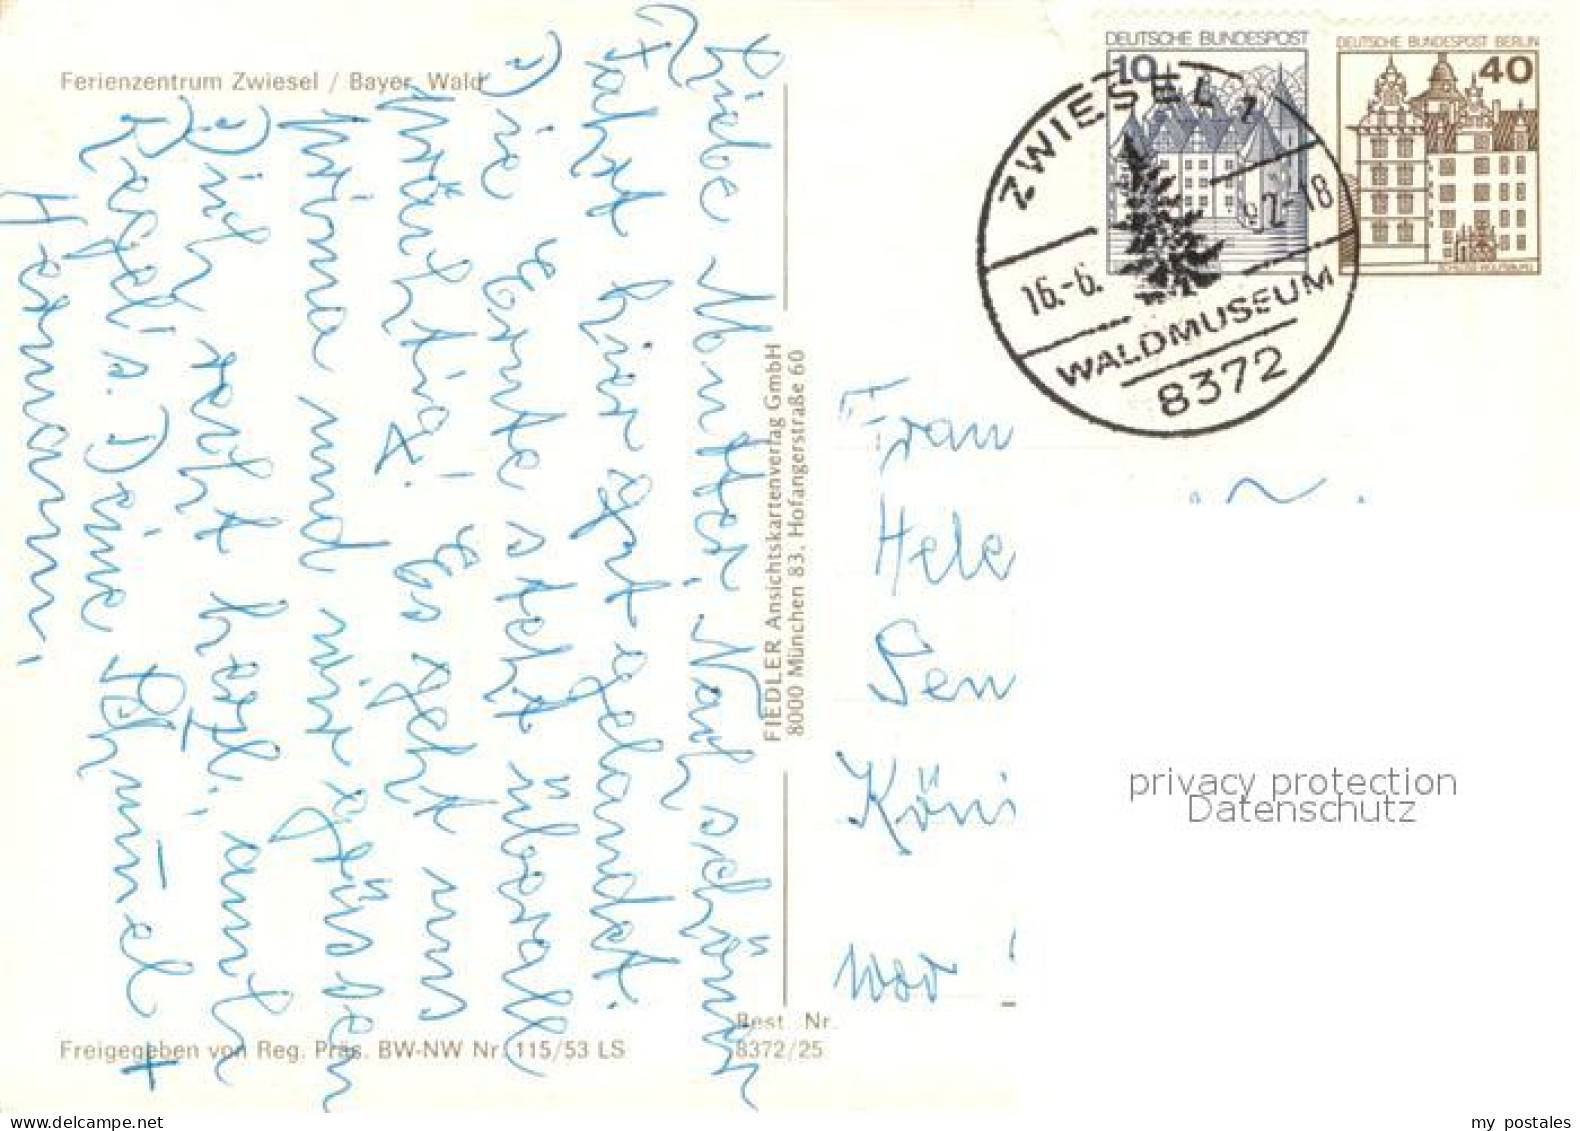 Ferienzentrum Zwiesel / Bayer. Wald
Liebe Mutter, Nach schöner
Fahrt hier gut gelandet.
Die Ernte steht überall
prächtig. Es geht uns
prima und wir grüßen
Dich recht herzl., auch
Deine
Hermann.
FIEDLER Ansichtskartenverlag GmbH
8000 München 83, Hofangerstraße 60
Freigegeben von Reg. Präs. BW-NW Nr. 115/53 LS
Best. Nr.
8372/25
DEUTSCHE BUNDESPOST
10
DEUTSCHE BUNDESPOST BERLIN
40
SCHLOSS WOLFSBURG
ZWIESEL 1
16.-6. 82-18
WALDMUSEUM
8372
Frau
Hele
Sen
Köni
privacy protection
Datenschutz
my postales